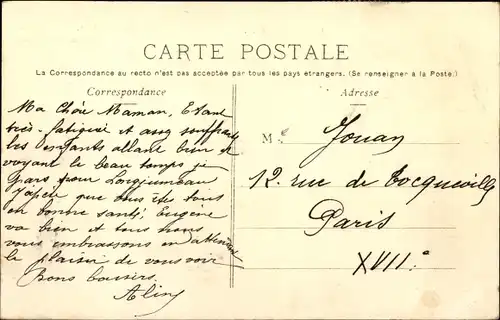 CARTE POSTALE
La Correspondance au recto n'est pas acceptée par tous les pays étrangers. (Se renseigner à la Poste.)
Correspondance
Adresse
Ma Chère Maman, Etant
très fatiguée et assez souffrante
les enfants allant bien et
voyant le beau temps je
pars pour Longjumeau
J'espère que vous êtes tous
en bonne santé, Eugène
va bien et tous nous
vous embrassons en attendant
le plaisir de vous voir
Bons baisers
M
Jouan
12. rue de Tocqueville
Paris
XVII e